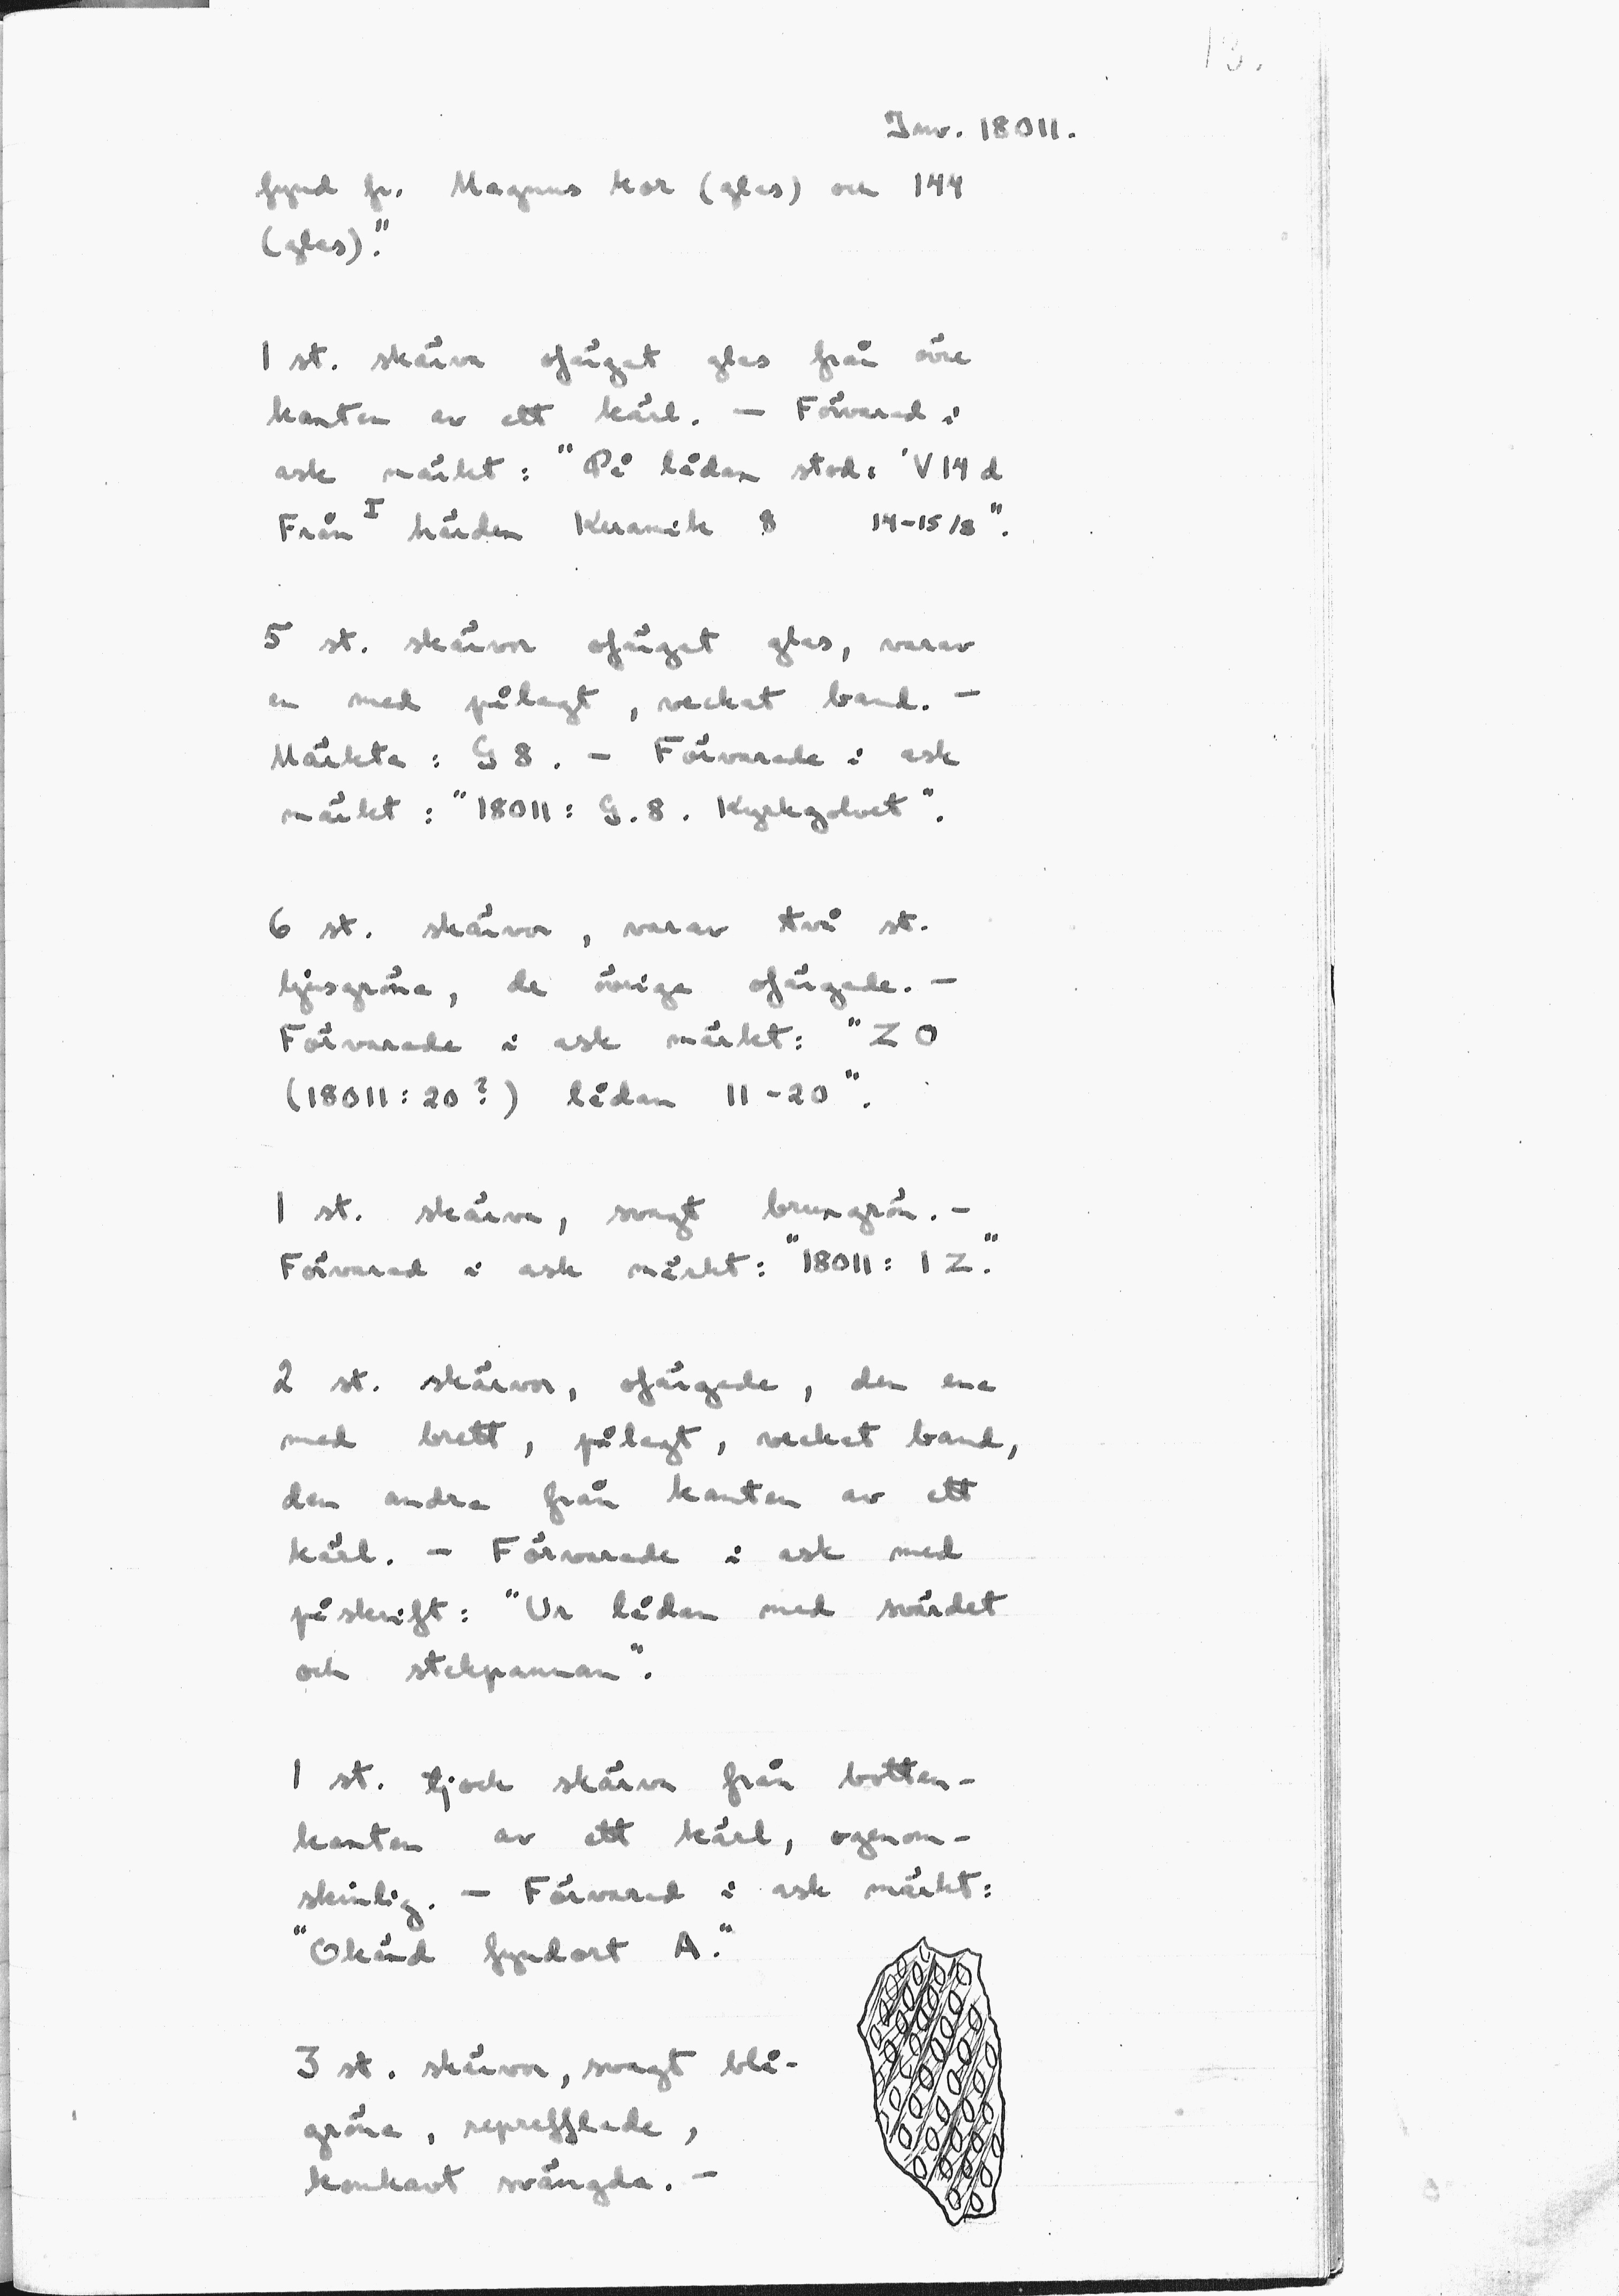 13.
Inv. 18011.
fynd fr. Magnus kor (glas) och 144
(glas)."
1 st. skärva ofärgat glas från övre
kanten av ett kärl. — Förvarad i
ask märkt: "På lådan stod: 'V14 d
Från I härden Keramik 8 14-15/8".
5 st. skärvor ofärgat glas, varav
en med pålagt, veckat band. —
Märkta: G 8. — Förvarade i ask
märkt: "18011: G.8. Kyrkgolvet".
6 st. skärvor, varav två st.
ljusgröna, de övriga ofärgade. —
Förvarade i ask märkt: "Z O
(18011:20?) lådan 11-20".
1 st. skärva, svagt brungrön. —
Förvarad i ask märkt: "18011: 1 Z."
2 st. skärvor, ofärgade, den ena
med brett, pålagt, veckat band,
den andra från kanten av ett
kärl. — Förvarade i ask med
påskrift: "Ur lådan med svärdet
och stekpannan".
1 st. tjock skärva från botten-
kanten av ett kärl, ogenom-
skinlig. — Förvarad i ask märkt:
"Okänd fyndort A."
3 st. skärvor, svagt blå-
gröna, reprefflade,
konkavt svängda. —